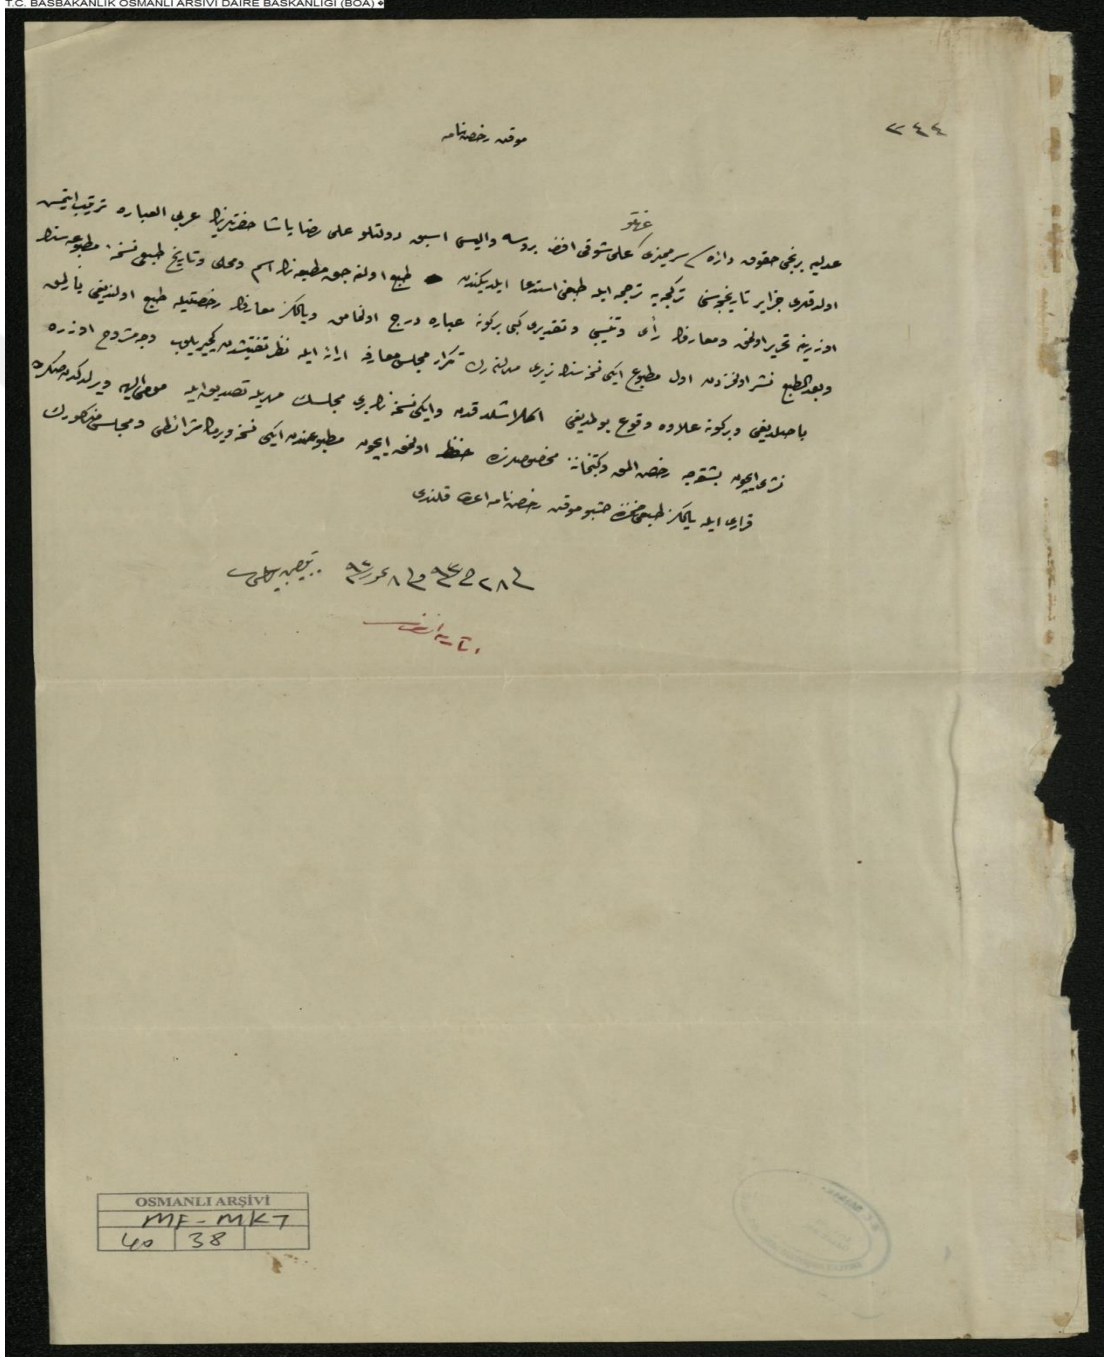 T.C. BAŞBAKANLIK OSMANLI ARŞİVİ DAİRE BAŞKANLIĞI (BOA)
٣٤٤
موقت رخصتنامه
عزتلو
عدليه برنجى حقوق دائره سى سرمميزى على شوقى افندى بروسه واليسى اسبق دولتلو على رضا پاشا حضرتلرينك عربى العباره ترتيب ايتمش
اولدقلرى جزاير تاريخچه‌سنى تركجه‌يه ترجمه ايله طبعنى استدعا ايلديكندن طبع اولنه‌جق مطبعه‌نك اسم ومحلى وتاريخ طبعى نسخ مطبوعه‌سنك
اوزرينه تحرير اولنمق ومعارفك رأى وتنسيبى وتقديرى كبى بركونه عباره درج اولنمامق ويالكز معارفك رخصتيله طبع اولنديغى يازلمق
وبعد الطبع نشر اولنمزدن اول مطبوع ايكى نسخه‌سنك زيرى مهرلنه‌رك تكرار مجلس معارفه ارائه ايله نظر تفتيشدن كچيريلوب وجه مشروح اوزره
باصلديغى وبركونه علاوه وقوع بولمديغى اكلاشلدقدن وايكى نسخه‌نك برى مجلسك مهريله تصديق ايله مومى اليه ويرلدكدن صكره
نشرى ايچون بشقه‌جه رخصت المق وكتبخانهٔ مخصوصلرنده حفظ اولنمق ايچون مطبوعندن ايكى نسخه ويرمك شرائطى ومجلس مذكورك
قرارى ايله يالكز طبعى ضمننده اشبو موقت رخصتنامه اعطا قلندى
فى ٢٨ ج ٩٣ وفى ٨ تموز ٩٢
OSMANLI ARŞİVİ
MF-MKT
40 38